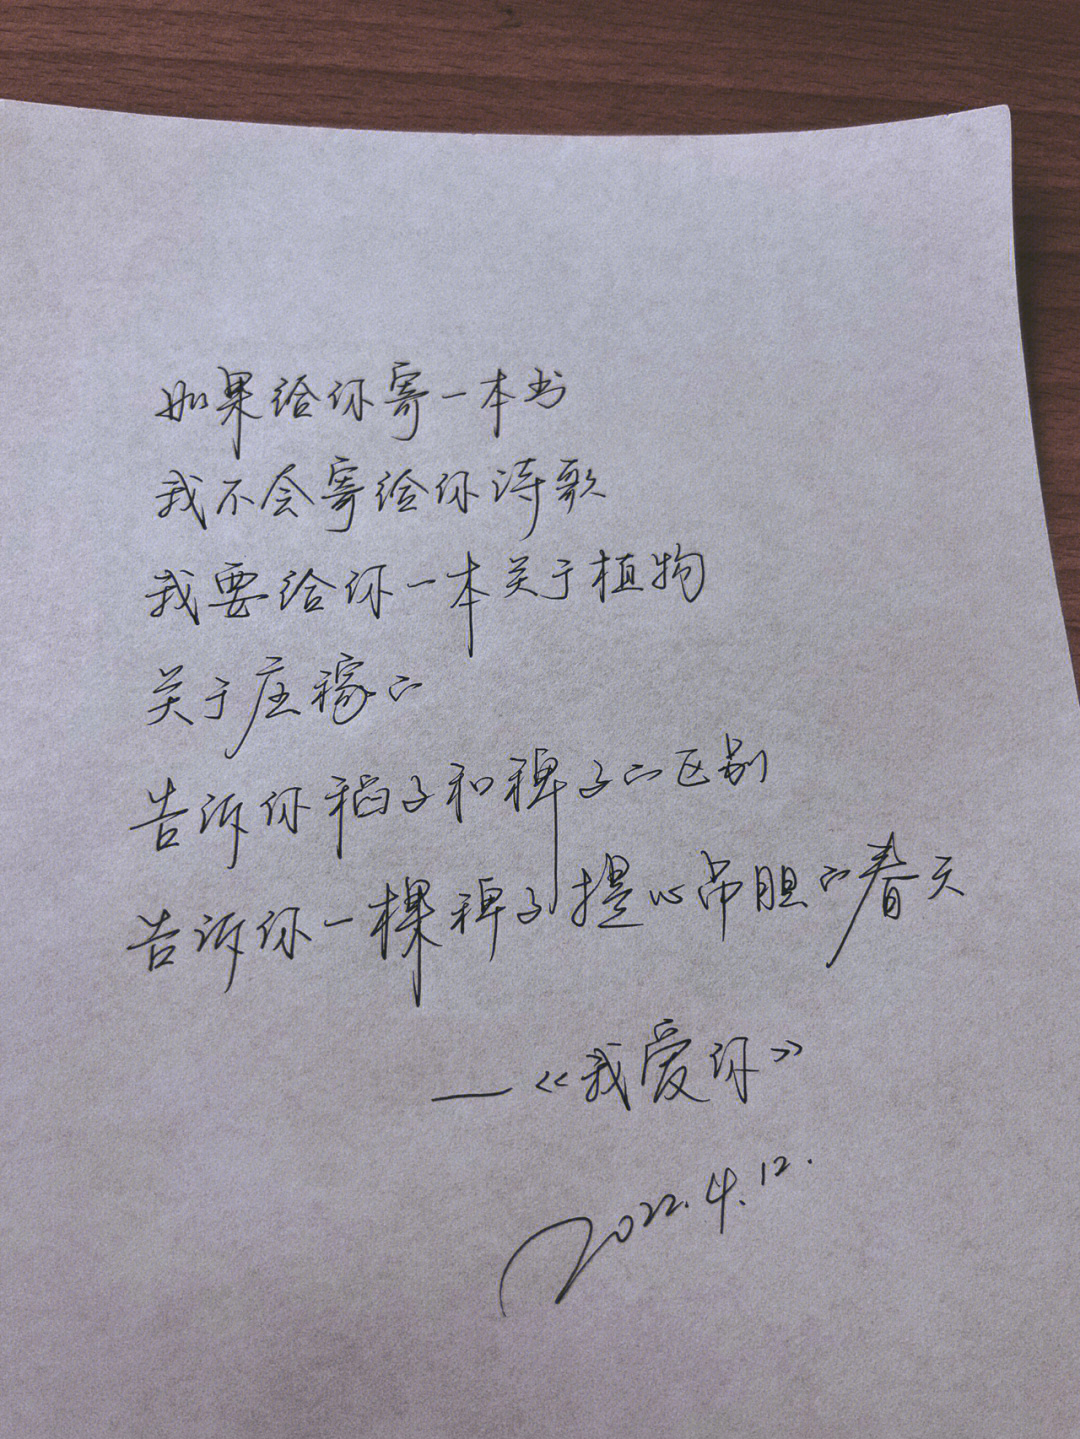 如果给你寄一本书
我不会寄给你诗歌
我要给你一本关于植物
关于庄稼的
告诉你稻子和稗子的区别
告诉你一棵稗子提心吊胆的春天
—《我爱你》
2022.4.12.